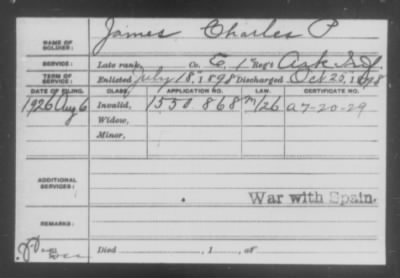 James Charles P
NAME OF SOLDIER:
SERVICE: Late rank, Co. E, 1" Reg't Ark Inf.
TERM OF SERVICE: Enlisted July 18", 1898 Discharged Oct 25, 1898
DATE OF FILING. CLASS. APPLICATION NO. LAW. CERTIFICATE NO.
1926 Aug 6 Invalid, 1550 868 /26 A 7-20-29
Widow,
Minor,
ADDITIONAL SERVICES:
War with Spain.
REMARKS:
Died , 1 , at